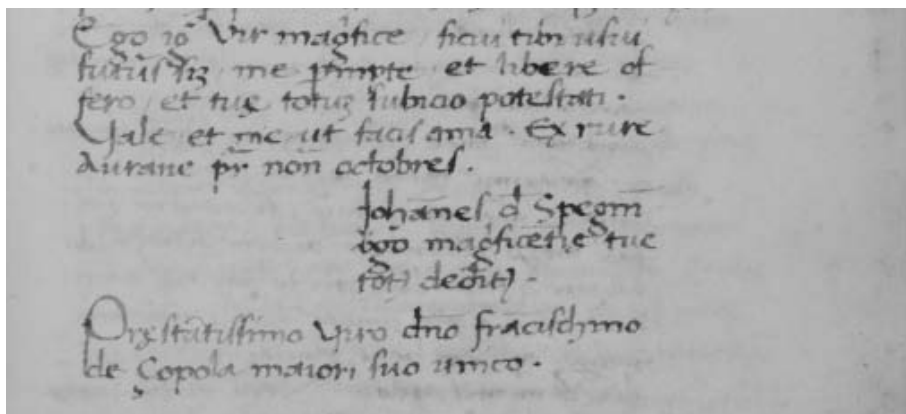 Ego igr̃ Vir mag̃fice sicui tibi usui
futurus siz me prompte et libere of
fero et tuę totuz subicio potestati.
Vale et me ut facis ama. Ex rure
Aurane pr non octobres.
Johañes d̃ Spegm̃
mag̃ficẽtię tuę
tot9 dedit9.
Pręstãtissimo Viro dño frãcischino
de Çopola maiori suo unico.